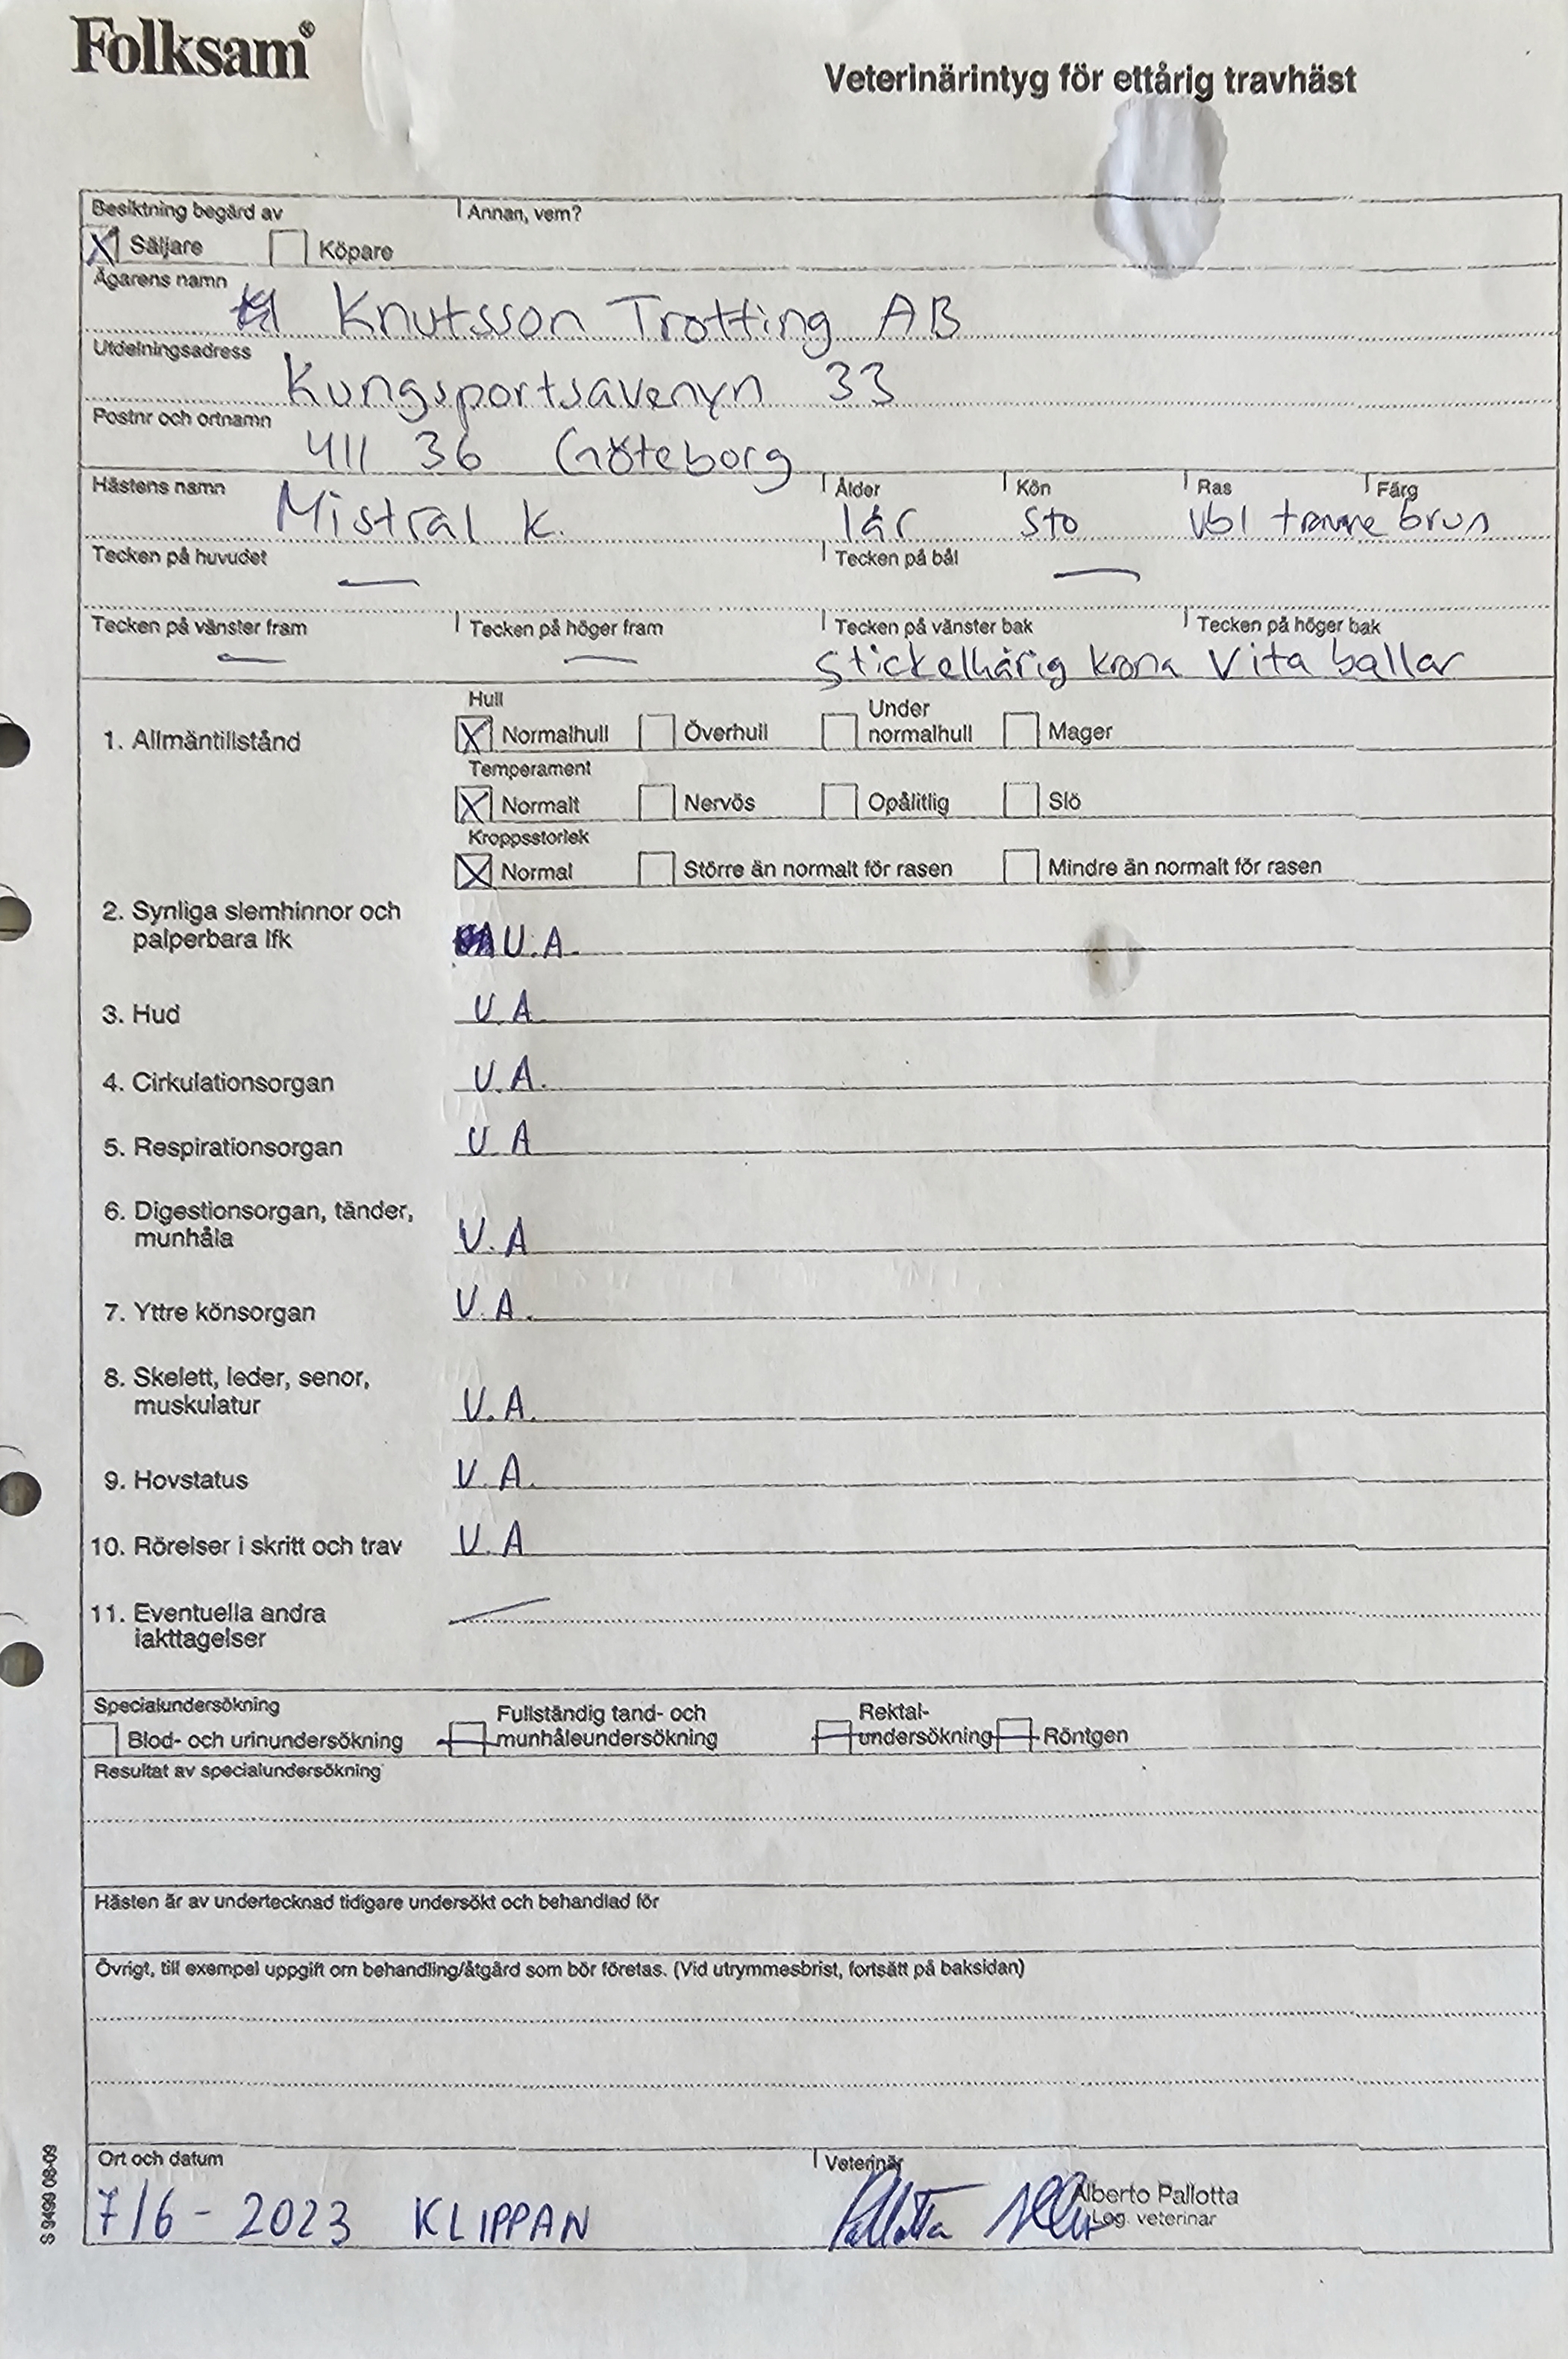 Folksam®
Veterinärintyg för ettårig travhäst
Besiktning begärd av Annan, vem?
X Säljare Köpare
Ägarens namn
Knutsson Trotting AB
Utdelningsadress
Kungsportsavenyn 33
Postnr och ortnamn
411 36 Göteborg
Hästens namn Ålder Kön Ras Färg
Mistral K. 1år Sto vbl brun
Tecken på huvudet Tecken på bål
— —
Tecken på vänster fram Tecken på höger fram Tecken på vänster bak Tecken på höger bak
— — Stickelhårig krona Vita ballar
Hull
1. Allmäntillstånd X Normalhull Överhull Under normalhull Mager
Temperament
X Normalt Nervös Opålitlig Slö
Kroppsstorlek
X Normal Större än normalt för rasen Mindre än normalt för rasen
2. Synliga slemhinnor och
palperbara lfk U.A.
3. Hud U.A
4. Cirkulationsorgan U.A.
5. Respirationsorgan U A
6. Digestionsorgan, tänder,
munhåla U.A
7. Yttre könsorgan U.A.
8. Skelett, leder, senor,
muskulatur U.A.
9. Hovstatus U.A.
10. Rörelser i skritt och trav U.A
11. Eventuella andra —
iakttagelser
Specialundersökning
Blod- och urinundersökning Fullständig tand- och munhåleundersökning Rektal-undersökning Röntgen
Resultat av specialundersökning
Hästen är av undertecknad tidigare undersökt och behandlad för
Övrigt, till exempel uppgift om behandling/åtgärd som bör företas. (Vid utrymmesbrist, fortsätt på baksidan)
Ort och datum Veterinär
7/6 - 2023 KLIPPAN Pallotta
Alberto Pallotta
Leg. veterinär
S 9499 08-09